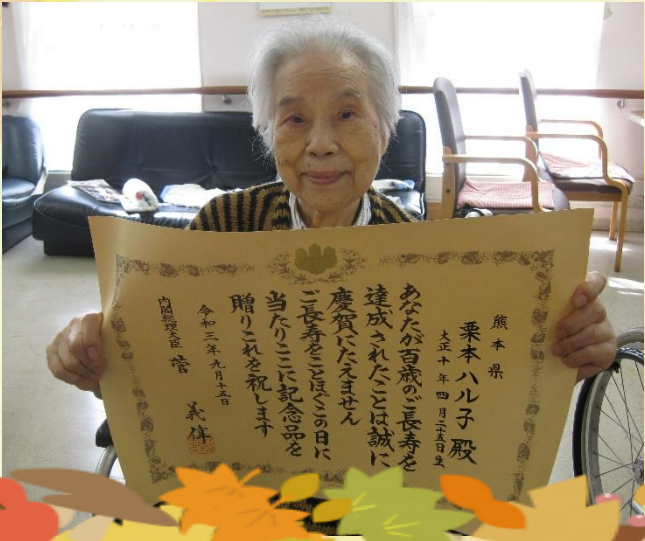 熊本県
栗本ハル子殿
大正十年四月二十五日生
あなたが百歳のご長寿を
達成されたことは誠に
慶賀にたえません
ご長寿をことほぐこの日に
当たりここに記念品を
贈りこれを祝します
令和三年九月十五日
内閣総理大臣 菅 義偉